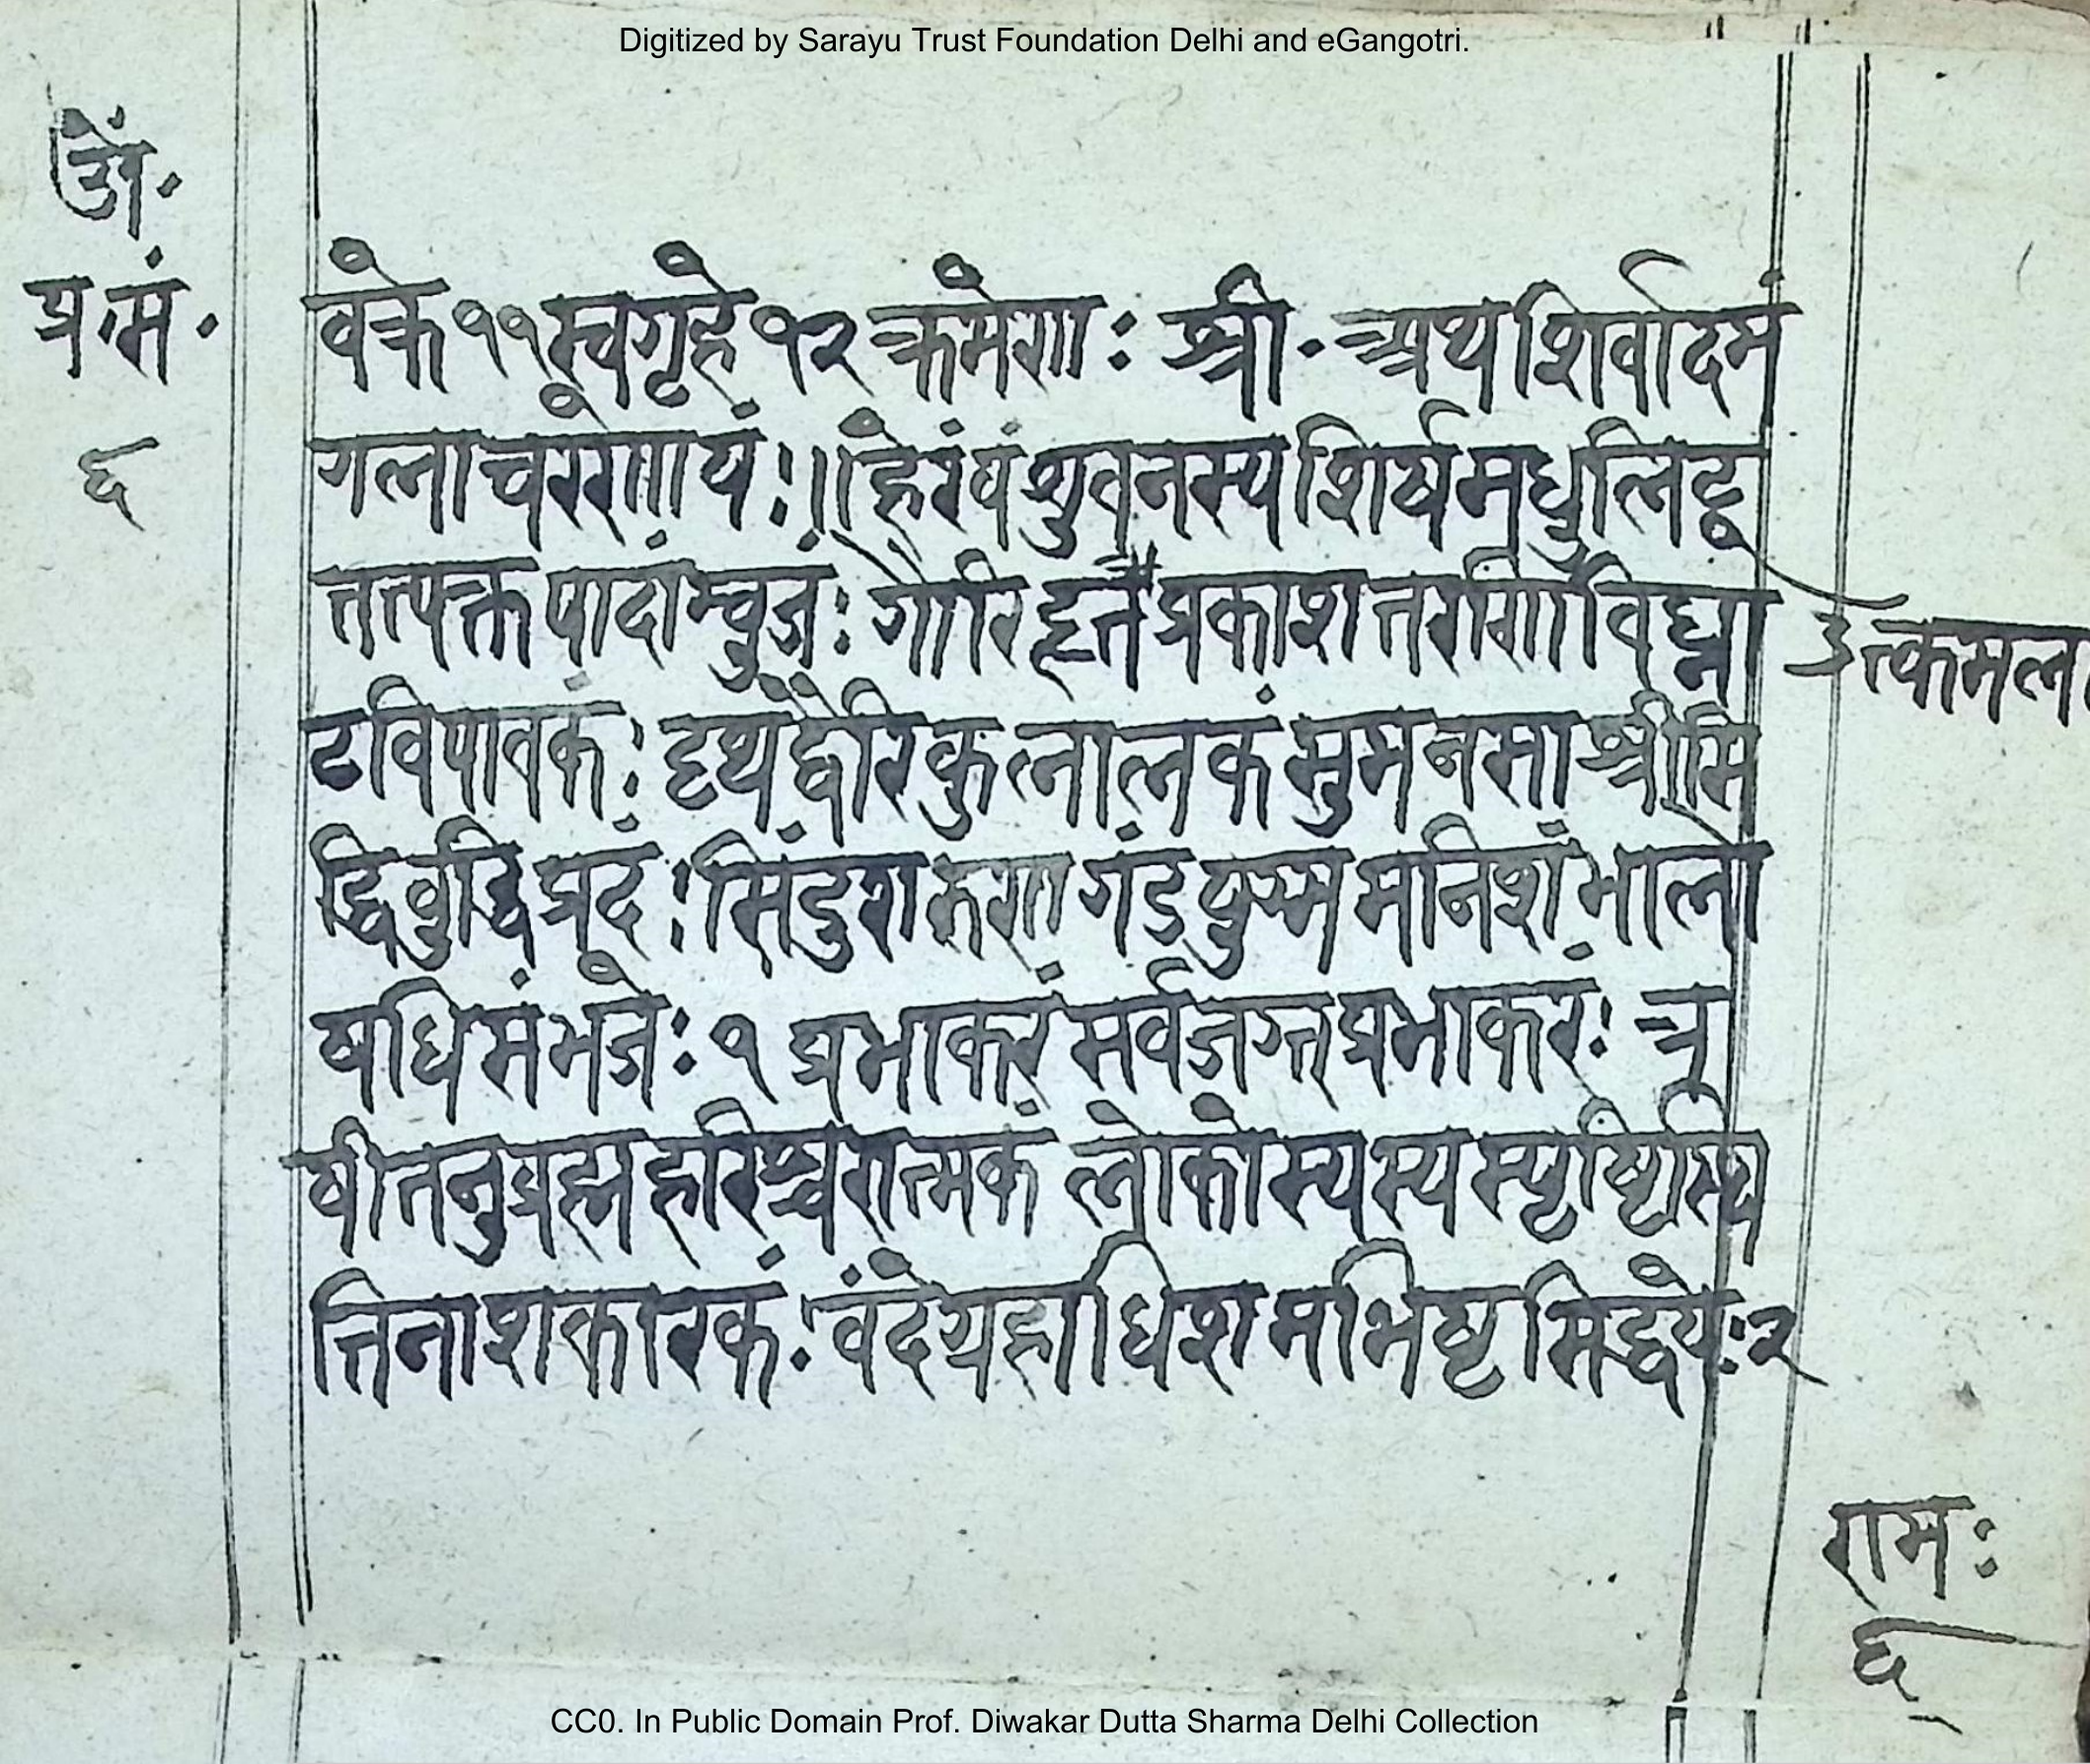 Digitized by Sarayu Trust Foundation Delhi and eGangotri.
प्र॰ सं॰
६
वके ११ स्वगृहे १२ क्रमेणाः श्री॰ अथ शिर्वादमं
गलाचरेणायं ः ॥ हेरंबं भुवनस्य शिर्षमधुलिट्
पादांम्बुजंः गौरि प्रकाशतरणिं विघ्ना
त्कमल
टविपावकंः कुलालकं सुमनसां श्रीसि
द्धिबुद्धिप्रदंः सिंदुरारुणगंडयुग्ममनिशं भाले
षधिसंभजेः १ प्रभाकरं सर्वजगत्प्रभाकरंः त्र
षीतनुब्रह्महरिश्वरात्मकं लोकोस्यस्य
त्तिनाशकारकं॰ वंदे ग्रहाधिशमभिष्टसिद्धयेः २
रामः
६
CC0. In Public Domain Prof. Diwakar Dutta Sharma Delhi Collection